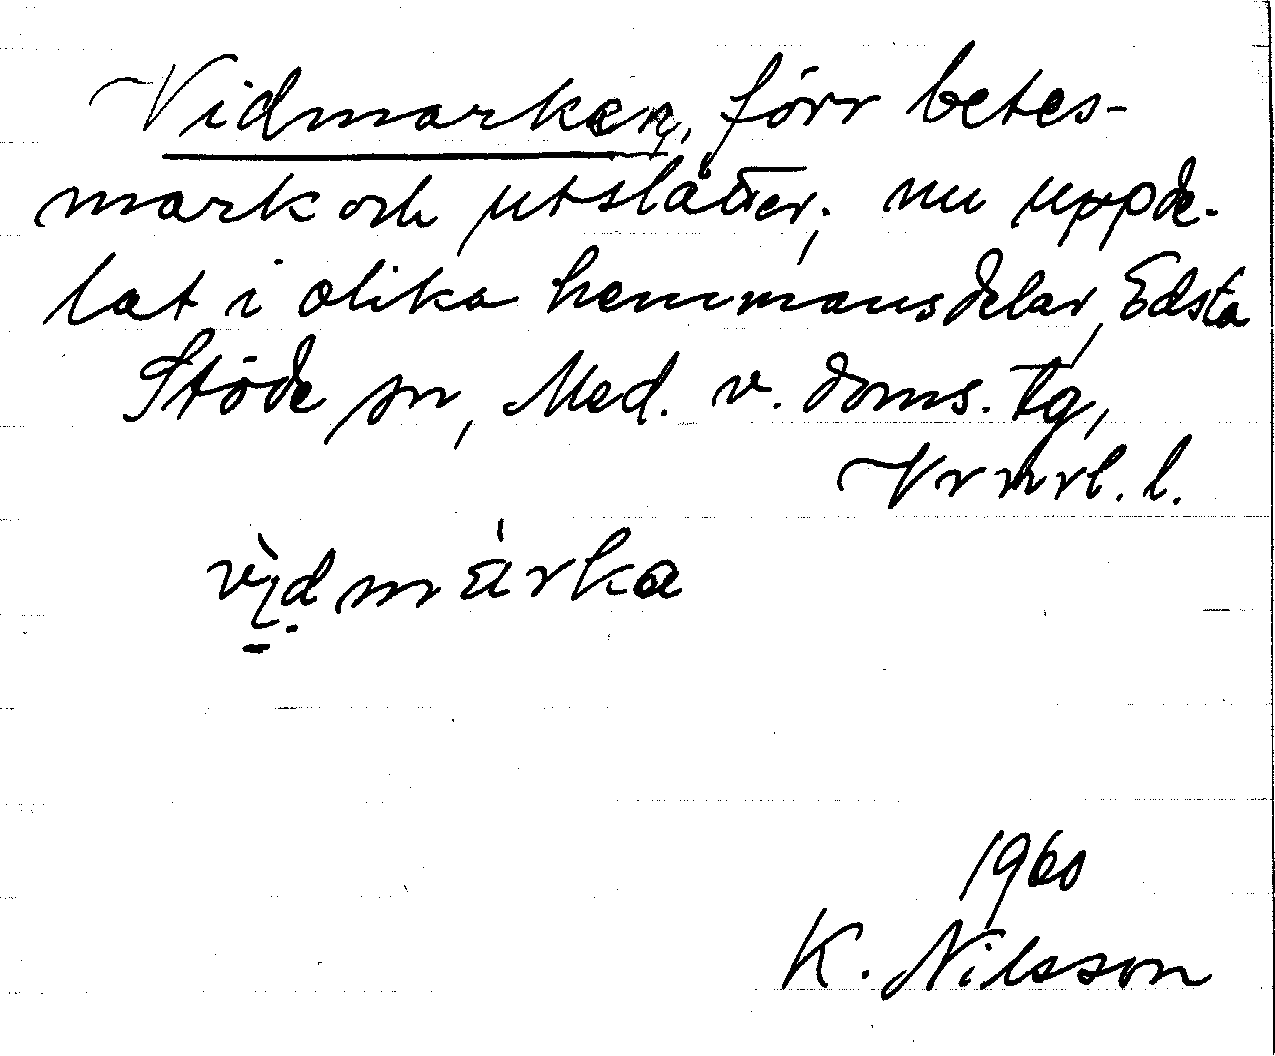 Vidmarken, förr betes-
mark och utslåtter, nu uppde-
lat i olika hemmansdelar, Edsta
Stöde sn, Med. v. doms. tg,
Vrnrl. l.
vìdmárka
1960
K. Nilsson